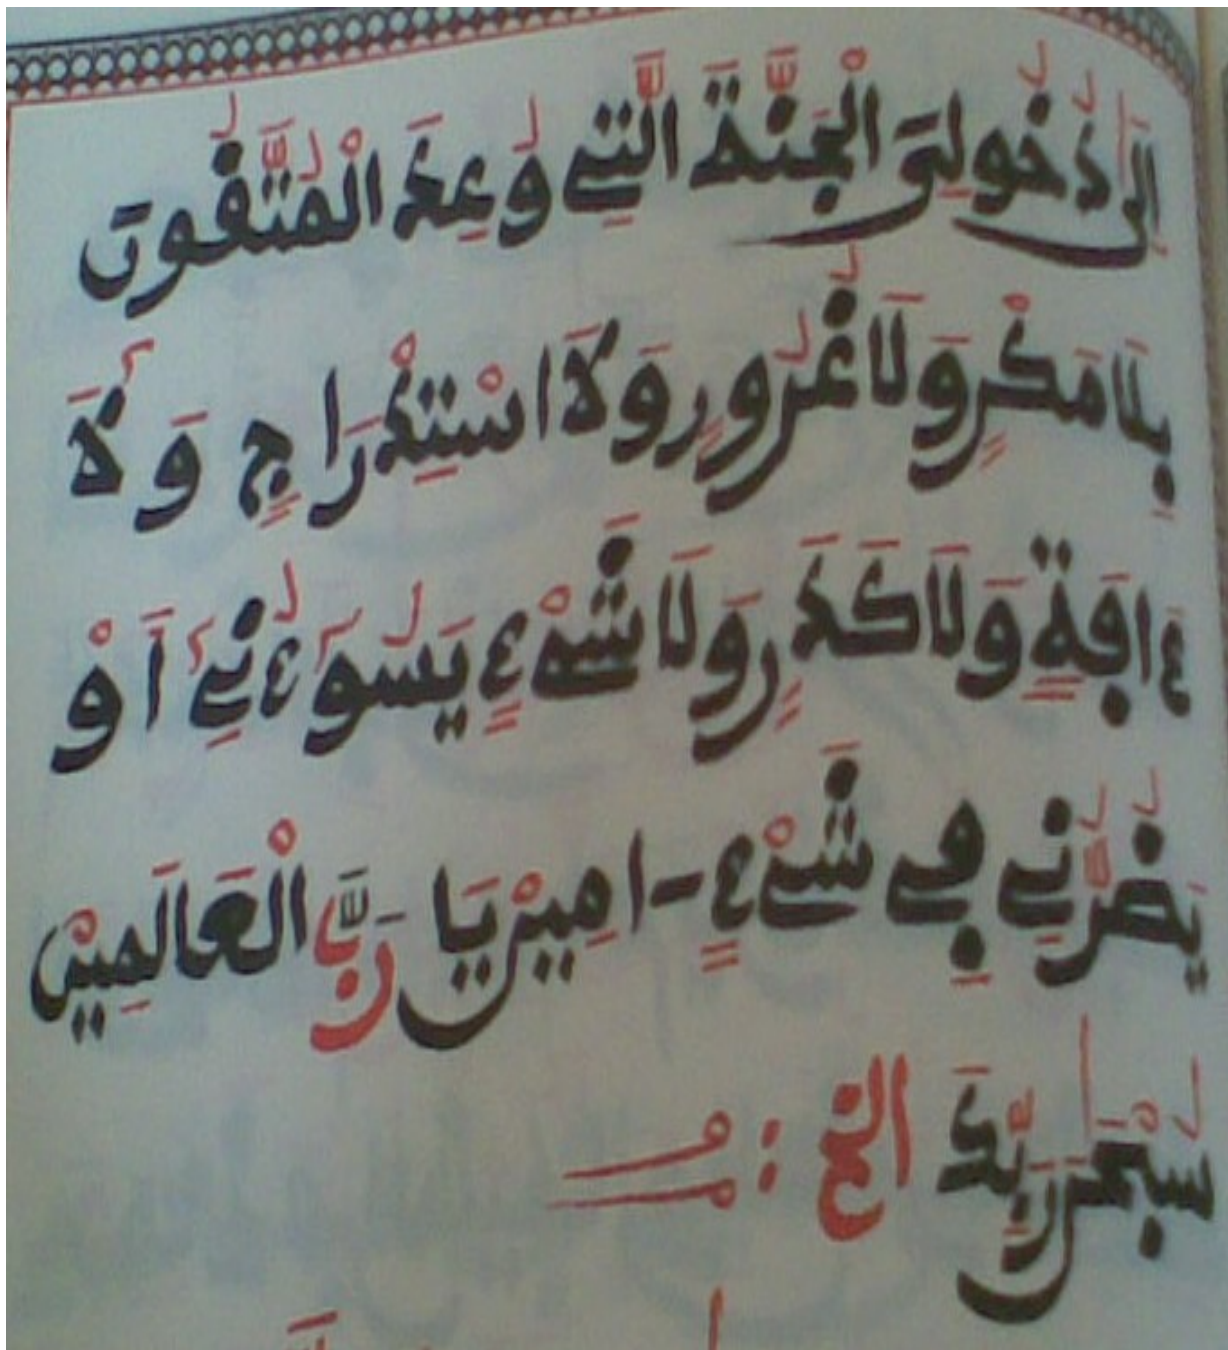 إِلَى دُخُولِيَ الْجَنَّةَ الَّتِي وُعِدَ الْمُتَّقُونَ
بِلَا مَكْرٍ وَلَا غُرُورٍ وَلَا اسْتِدْرَاجٍ وَلَا
ءَافَةٍ وَلَا كَدَرٍ وَلَا شَيْءٍ يَسُوءُنِي أَوْ
يَضُرُّنِي فِي شَيْءٍ - امِين يَا رَبَّ الْعَالَمِين
سُبْحَٰنَ رَبِّكَ الخ :